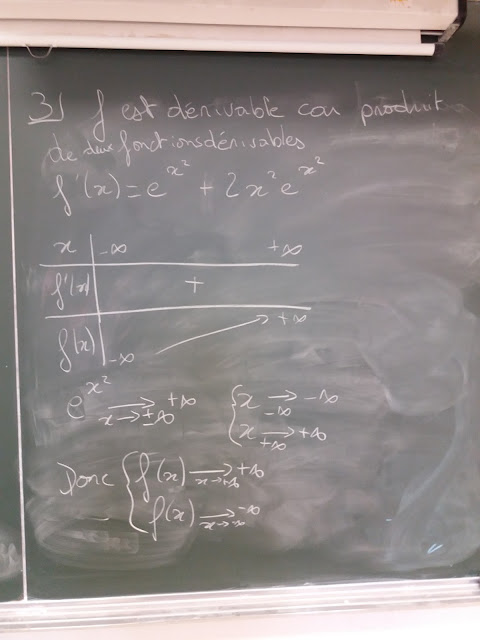 3) f est dérivable car produit
de deux fonctions dérivables
f'(x) = e^{x^2} + 2x^2 e^{x^2}
x | -∞ +∞
f'(x) | +
f(x) | -∞ → +∞
e^{x^2} →_{x→±∞} +∞ { x →_{-∞} -∞
x →_{+∞} +∞
Donc { f(x) →_{x→+∞} +∞
f(x) →_{x→-∞} -∞